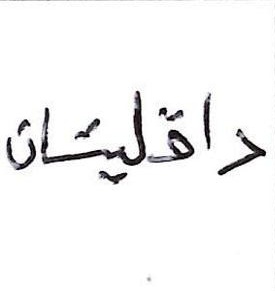 داقليشان